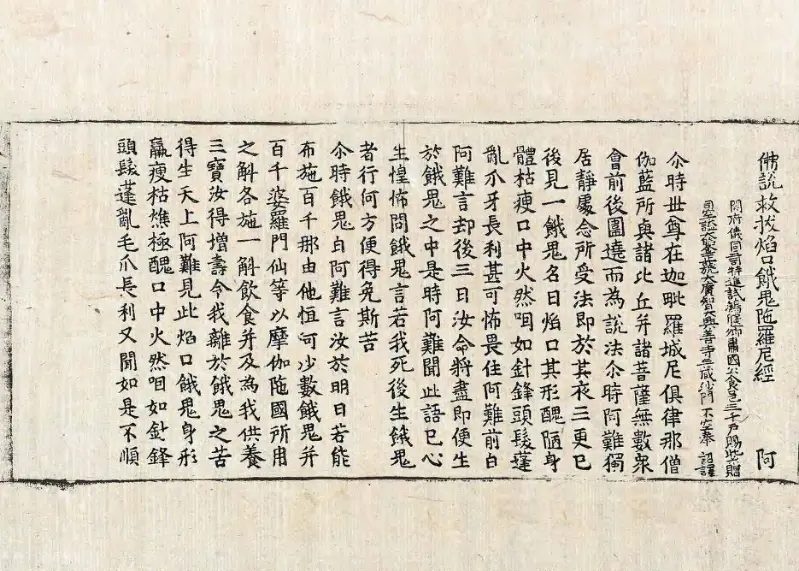 佛說救拔焰口餓鬼陁羅尼經 阿
開府儀同司特進試鴻臚卿肅國公食邑三千戶賜紫贈
司空謚大鑒正號大廣智大興善寺三藏沙門不空奉 詔譯
尒時世尊在迦毗羅城尼俱律那僧
伽藍所與諸比丘并諸菩薩無數衆
會前後圍遶而為說法尒時阿難獨
居靜處念所受法即於其夜三更已
後見一餓鬼名曰焰口其形醜陋身
體枯瘦口中火然咽如針鋒頭髮蓬
亂爪牙長利甚可怖畏住阿難前白
阿難言却後三日汝命將盡即便生
於餓鬼之中是時阿難聞此語已心
生惶怖問餓鬼言若我死後生餓鬼
者行何方便得免斯苦
尒時餓鬼白阿難言汝於明日若能
布施百千那由他恒河沙數餓鬼并
百千婆羅門仙等以摩伽陁國所用
之斛各施一斛飲食并及為我供養
三寶汝得增壽令我離於餓鬼之苦
得生天上阿難見此焰口餓鬼身形
羸瘦枯燋極醜口中火然咽如針鋒
頭髮蓬亂毛爪長利又聞如是不順